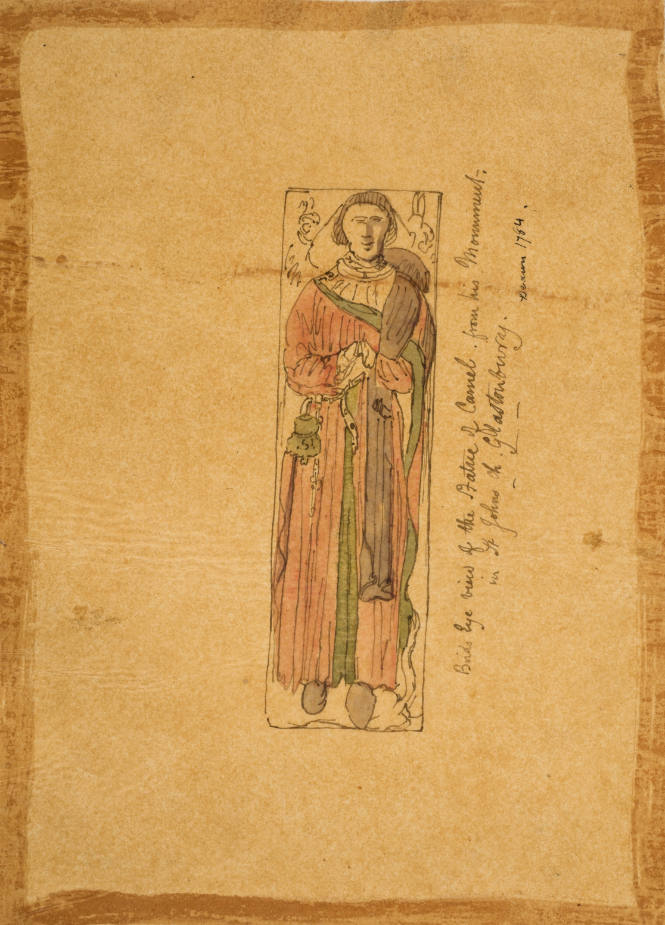 Birds Eye view of the Statue of Camel. from his Monument
in St Johns Ch. Glastonbury.
1784.